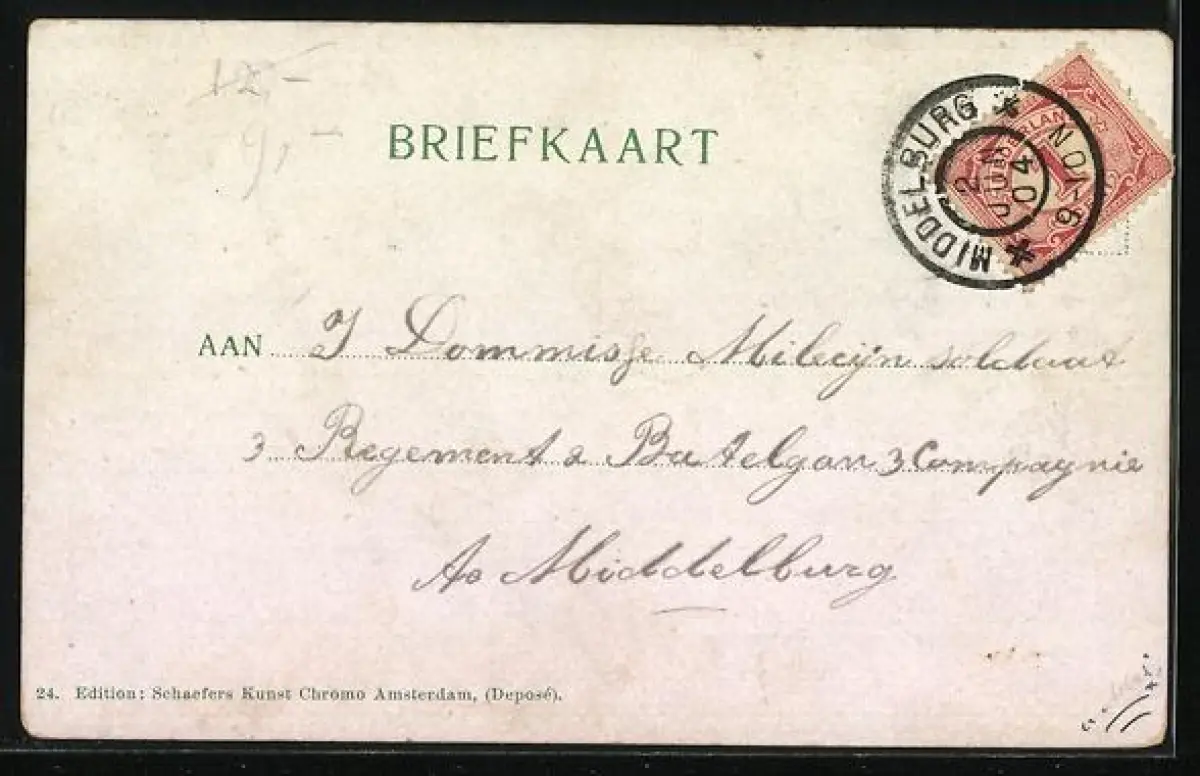 12,-
9,-
BRIEFKAART
MIDDELBURG
6-10N
2
JUN
04
AAN J Dommisse Milecijn soldaat
3 Regement 2 Batelgon 3 Compaynie
Ae Middelburg
24. Edition: Schaefers Kunst Chromo Amsterdam, (Deposé).